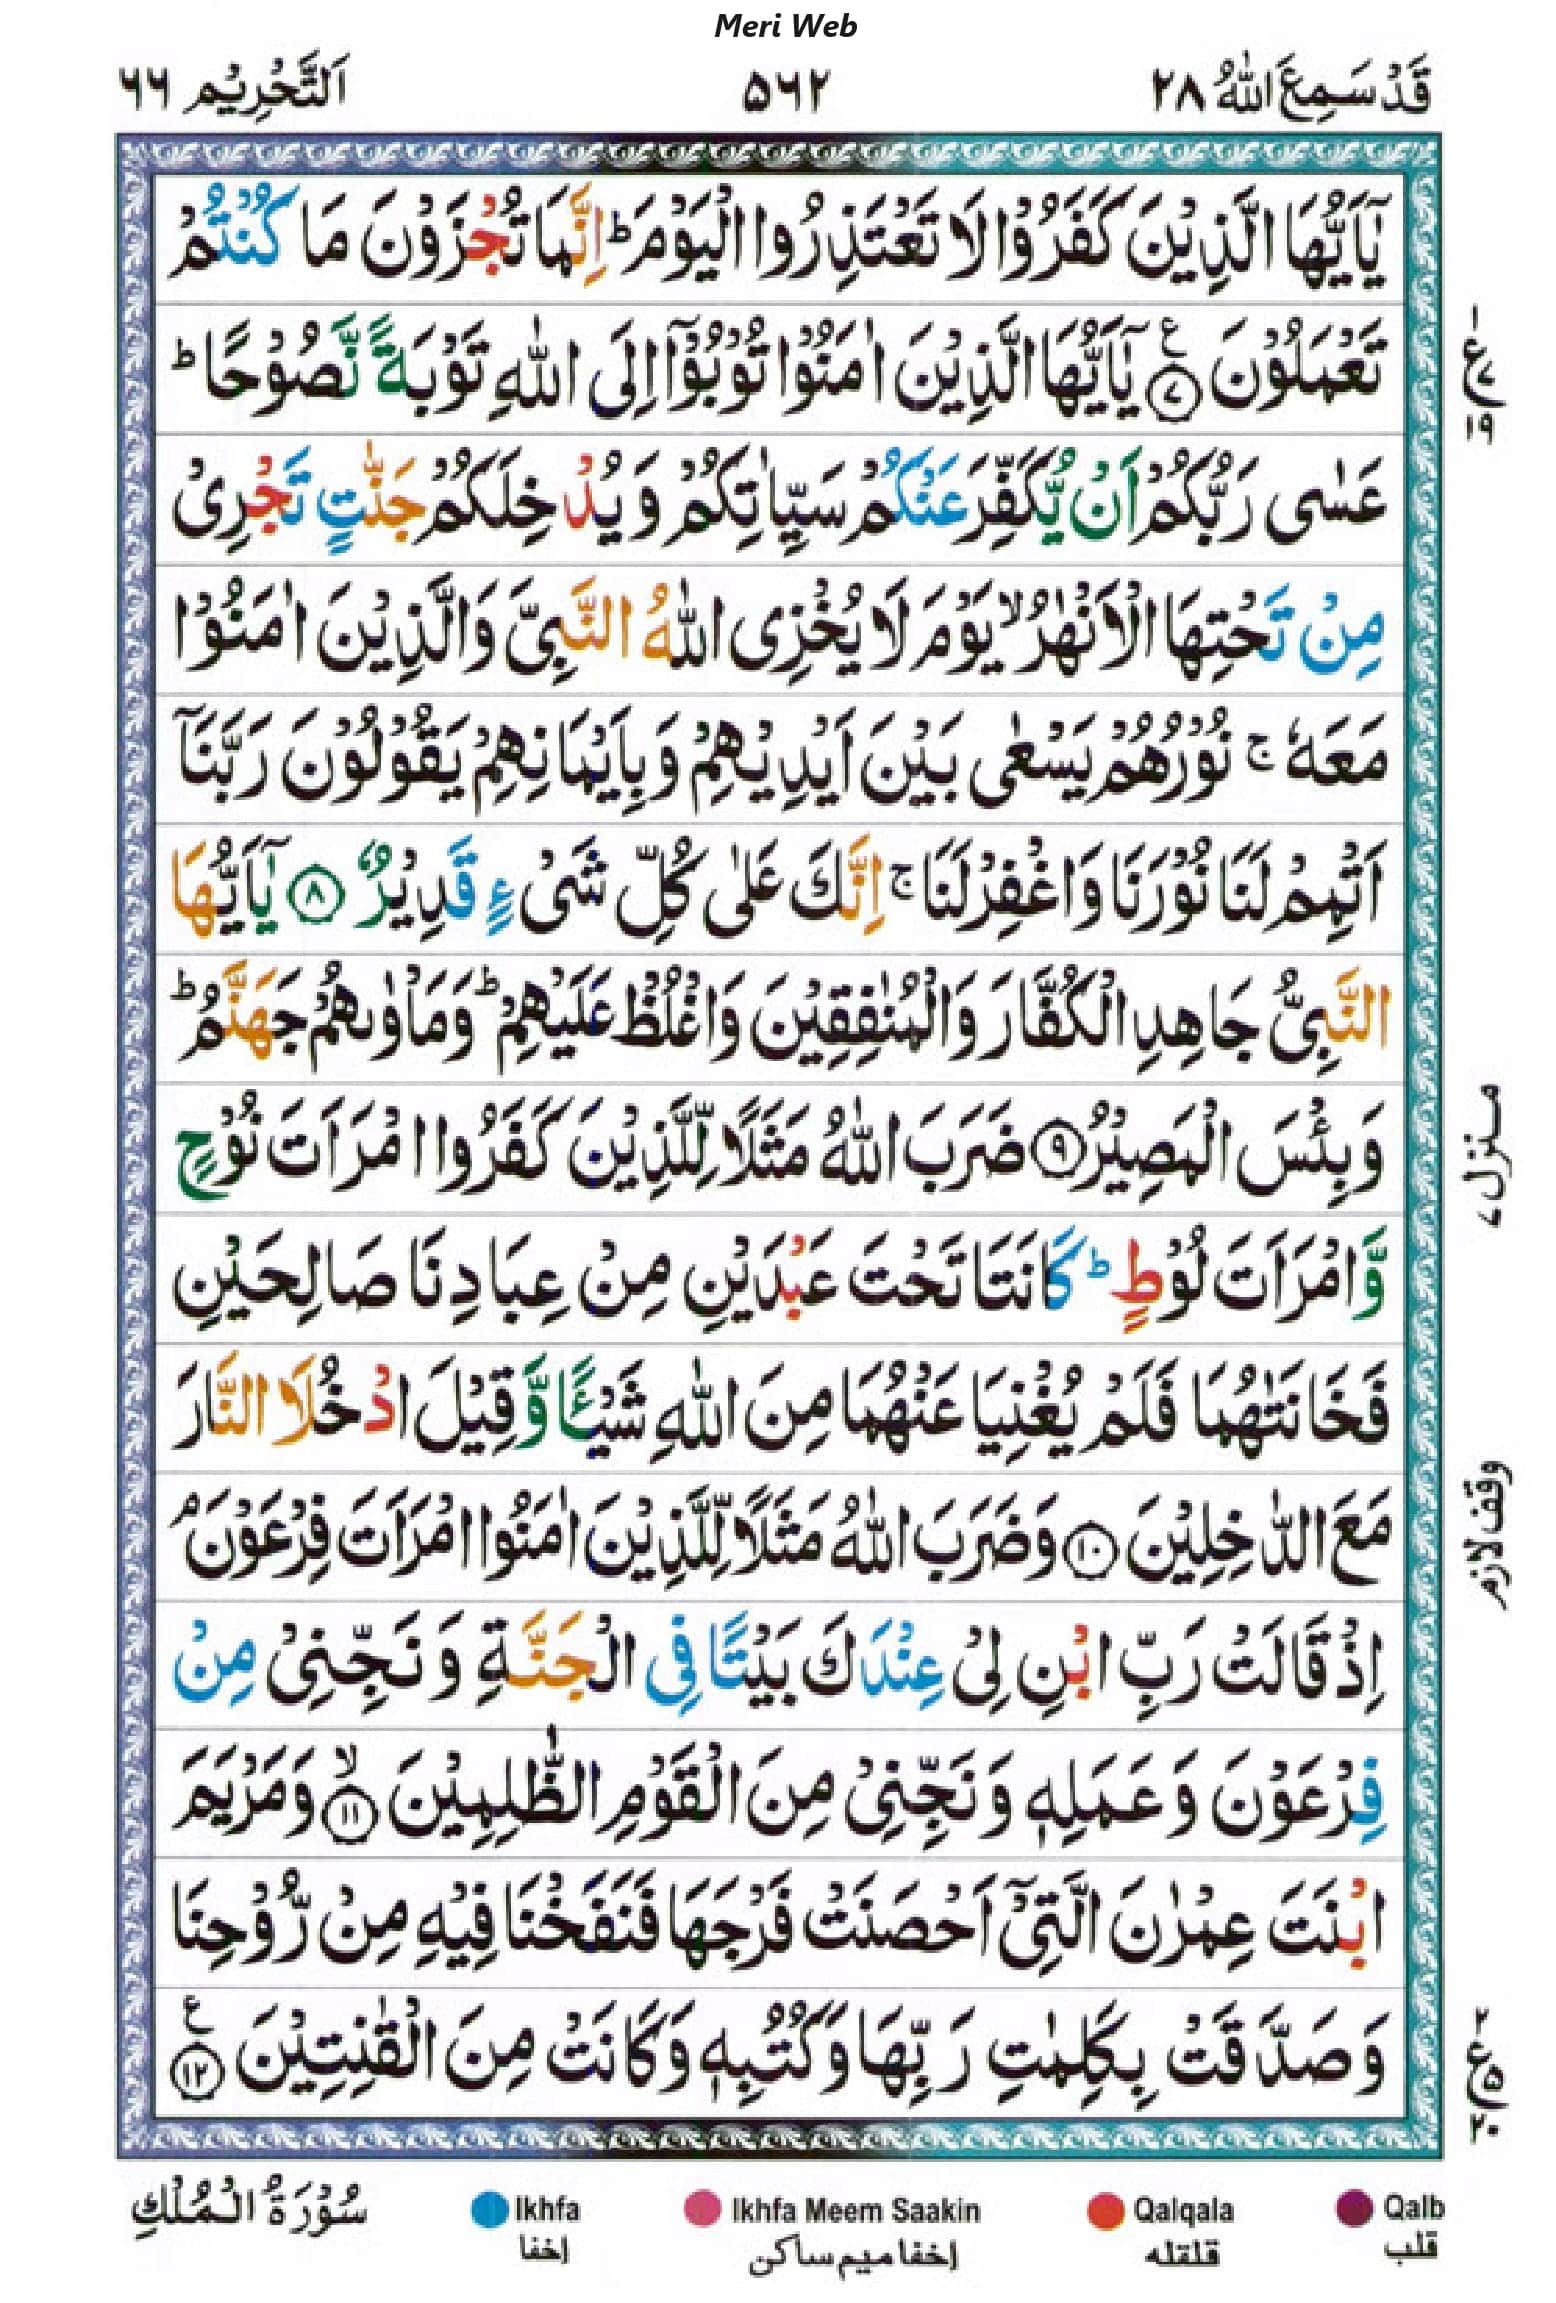 Meri Web
قَدْ سَمِعَ اللّٰهُ ٢٨
٥٦٢
اَلتَّحْرِيْم ٦٦
يٰۤاَيُّهَا الَّذِيْنَ كَفَرُوْا لَا تَعْتَذِرُوا الْيَوْمَ ؕ اِنَّمَا تُجْزَوْنَ مَا كُنْتُمْ
تَعْمَلُوْنَ ۧ ﴿٧﴾ يٰۤاَيُّهَا الَّذِيْنَ اٰمَنُوْا تُوْبُوْۤا اِلَى اللّٰهِ تَوْبَةً نَّصُوْحًا ؕ
عَسٰى رَبُّكُمْ اَنْ يُّكَفِّرَ عَنْكُمْ سَيِّاٰتِكُمْ وَ يُدْخِلَكُمْ جَنّٰتٍ تَجْرِىْ
مِنْ تَحْتِهَا الْاَنْهٰرُ ۙ يَوْمَ لَا يُخْزِى اللّٰهُ النَّبِىَّ وَالَّذِيْنَ اٰمَنُوْا
مَعَهٗ ۚ نُوْرُهُمْ يَسْعٰى بَيْنَ اَيْدِيْهِمْ وَبِاَيْمَانِهِمْ يَقُوْلُوْنَ رَبَّنَاۤ
اَتْمِمْ لَنَا نُوْرَنَا وَاغْفِرْ لَنَا ۚ اِنَّكَ عَلٰى كُلِّ شَىْءٍ قَدِيْرٌ ﴿٨﴾ يٰۤاَيُّهَا
النَّبِىُّ جَاهِدِ الْكُفَّارَ وَالْمُنٰفِقِيْنَ وَاغْلُظْ عَلَيْهِمْ ؕ وَمَاْوٰىهُمْ جَهَنَّمُ ؕ
وَبِئْسَ الْمَصِيْرُ ﴿٩﴾ ضَرَبَ اللّٰهُ مَثَلًا لِّلَّذِيْنَ كَفَرُوا امْرَاَتَ نُوْحٍ
وَّامْرَاَتَ لُوْطٍ ؕ كَانَتَا تَحْتَ عَبْدَيْنِ مِنْ عِبَادِنَا صَالِحَيْنِ
فَخَانَتٰهُمَا فَلَمْ يُغْنِيَا عَنْهُمَا مِنَ اللّٰهِ شَيْـًٔا وَّقِيْلَ ادْخُلَا النَّارَ
مَعَ الدّٰخِلِيْنَ ﴿١٠﴾ وَضَرَبَ اللّٰهُ مَثَلًا لِّلَّذِيْنَ اٰمَنُوا امْرَاَتَ فِرْعَوْنَ ۘ
اِذْ قَالَتْ رَبِّ ابْنِ لِىْ عِنْدَكَ بَيْتًا فِى الْجَنَّةِ وَ نَجِّنِىْ مِنْ
فِرْعَوْنَ وَ عَمَلِهٖ وَ نَجِّنِىْ مِنَ الْقَوْمِ الظّٰلِمِيْنَ ۙ ﴿١١﴾ وَمَرْيَمَ
ابْنَتَ عِمْرٰنَ الَّتِىْۤ اَحْصَنَتْ فَرْجَهَا فَنَفَخْنَا فِيْهِ مِنْ رُّوْحِنَا
وَ صَدَّقَتْ بِكَلِمٰتِ رَبِّهَا وَكُتُبِهٖ وَكَانَتْ مِنَ الْقٰنِتِيْنَ ۧ ﴿١٢﴾
١
ع
٧
١٩
منزل ٧
وقف لازم
٢
ع
٥
٢٠
سُوْرَةُ الْمُلْكِ
Ikhfa
اخفا
Ikhfa Meem Saakin
اخفا ميم ساكن
Qalqala
قلقله
Qalb
قلب